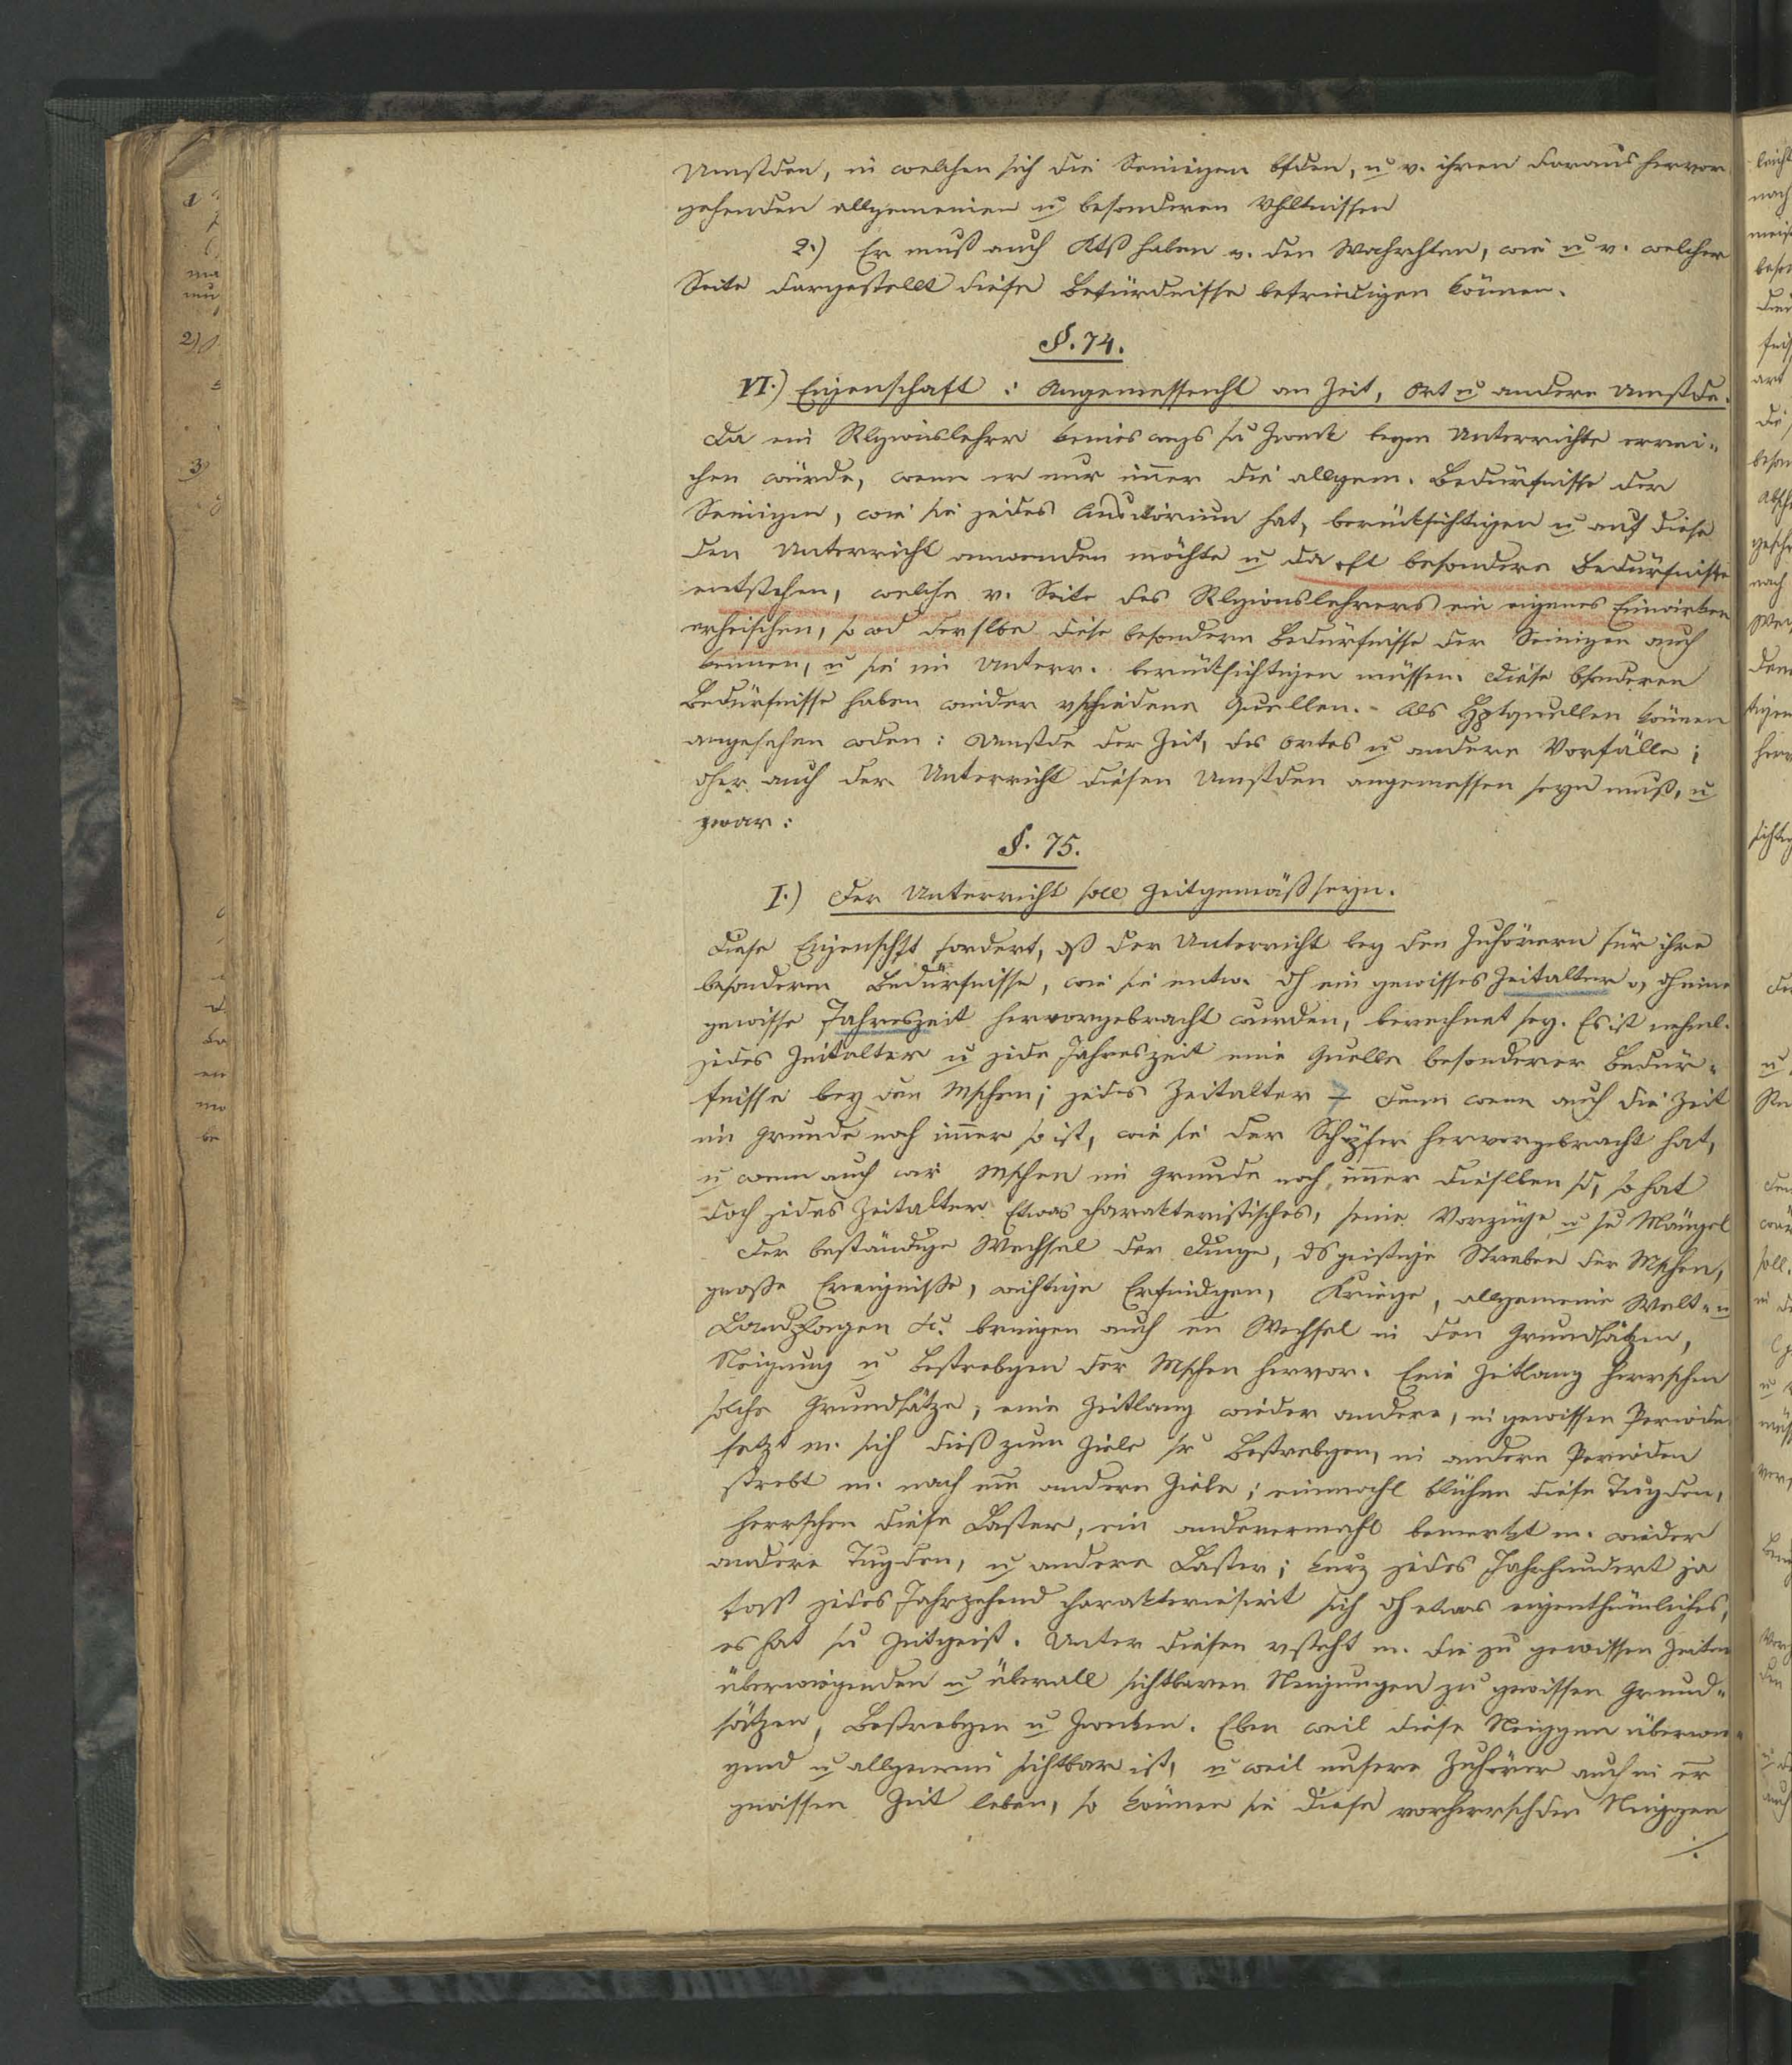 Umstden, in welchen sich die Seinigen bfden, u v. ihren daraus hervor
gehenden allgemeinen u besonderen Vhltnissen
2.) Er muß auch Ktß haben v. den Wahrhten, wie u v. welcher
Seite dargestellt diese Bedürdnisse befriedigen können.
§. 74.
VI.) Eigenschaft : Angemessenht an Zeit, Ort u andere Umstde.
Da ein Rlgionslehrer keines wegs sn Zweck beym Unterrichte errei=
chen würde, wenn er nur imer die allgem. Bedürfnisse der
Seinigen, wie sie jedes Auditorium hat, berücksichtigen u auf diese
den Unterricht anwenden möchte u da oft besondere Bedürfnisse
entstehen, welche v. Seite des Rlgionslehrers ein eigenes Einwirken
erheischen, so wd derslbe diese besondern Bedürfnisse der Seinigen auch
kennen, u sie im Unterr. berücksichtigen müssen. Diese bsonderen
Bedürfnisse haben wieder vschiedene Quellen. - Als Hptquellen können
angesehen wden : Umstde der Zeit, des Ortes u andere Vorfälle ;
dher auch der Unterricht diesen Umstden angemessen seyn muß, u
zwar :
§. 75.
I.) Der Unterricht soll zeitgemäß seyn.
Diese Eigenschft fordert, dß der Unterricht bey den Zuhörern für ihre
besonderen Bedürfnisse, wie sie entw. dh ein gewisses Zeitalter o, dh eine
gewisse Jahreszeit hervorgebracht wurden, berechnet sey. Es ist nehml.
jedes Zeitalter u jede Jahreszeit eine Quelle besonderer Bedür=
fnisse bey den Mschen ; jedes Zeitalter – denn wenn auch die Zeit
im Grunde noch imer so ist, wie sie der Schöpfer hervorgebracht hat,
u wenn auch wir Mschen im Grunde noch imer dieslben sd, so hat
doch jedes Zeitalter Etwas charakteristisches, seine Vorzüge u se Mängel
Der beständige Wechsel der Dinge, ds geistige Streben der Mschen,
große Ereigniße, wichtige Erfindgen, Kriege, allgemeine Welt= u
Landplagen &c. bringen auch en Wechsel in den Grundsätzen,
Neigung u Bestrebgen der Mschen hervor. Eine Zeitlang herrschen
solche Grundsätze, eine Zeitlang wieder andere, in gewissen Perioden
setzt m. sich dieß zum Ziele sr Bestrebgen, in andern Perioden
strebt m. nach em andern Ziele ; einmahl blühen diese Tugden,
herrschen diese Laster, ein andermahl bemerkt m. wieder
andere Tugden, u andere Laster ; kurz jedes Jahrhundert ja
fast jedes Jahrzehend charakterisirt sich dh etwas eigenthümliches,
es hat sn Zeitgeist. Unter diesen vsteht m. die zu gewissen Zeiten
überwiegenden u überall sichtbaren Neigungen zu gewissen Grund=
sätzen, Bestrebgen u Zwecken. Eben weil diese Neiggen überwie=
gend u allgemein sichtbar ist, u weil unsere Zuhörer auch in er
gewissen Zeit leben, so können sie diese vorherrschden Neiggen
./.